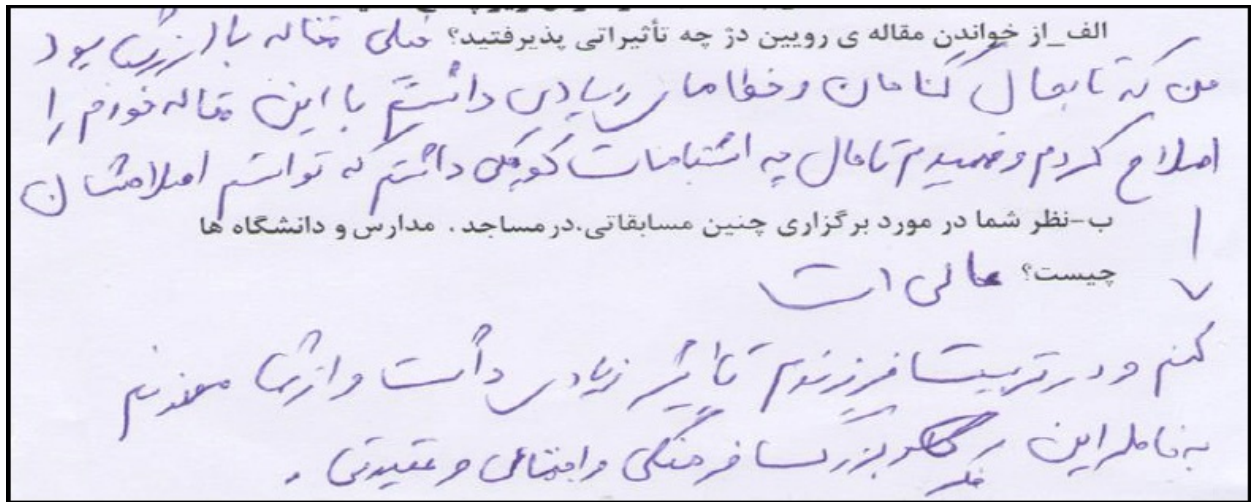 الف_از خواندن مقاله ی رویین دژ چه تأثیراتی پذیرفتید؟ خیلی مقاله با ارزشی بود
من که تابحال گناهان و خطاهای زیادی داشتم با این مقاله خودم را
اصلاح کردم و فهمیدم تا حال چه اشتباهات کوچکی داشتم که توانستم اصلاحشان
ب-نظر شما در مورد برگزاری چنین مسابقاتی.در مساجد . مدارس و دانشگاه ها
چیست؟ عالی است
کنم و در تربیت فرزندم تأثیر زیادی داشت و از شما ممنونم
به خاطر این کار بزرگ فرهنگی و اجتماعی و عقیدتی .